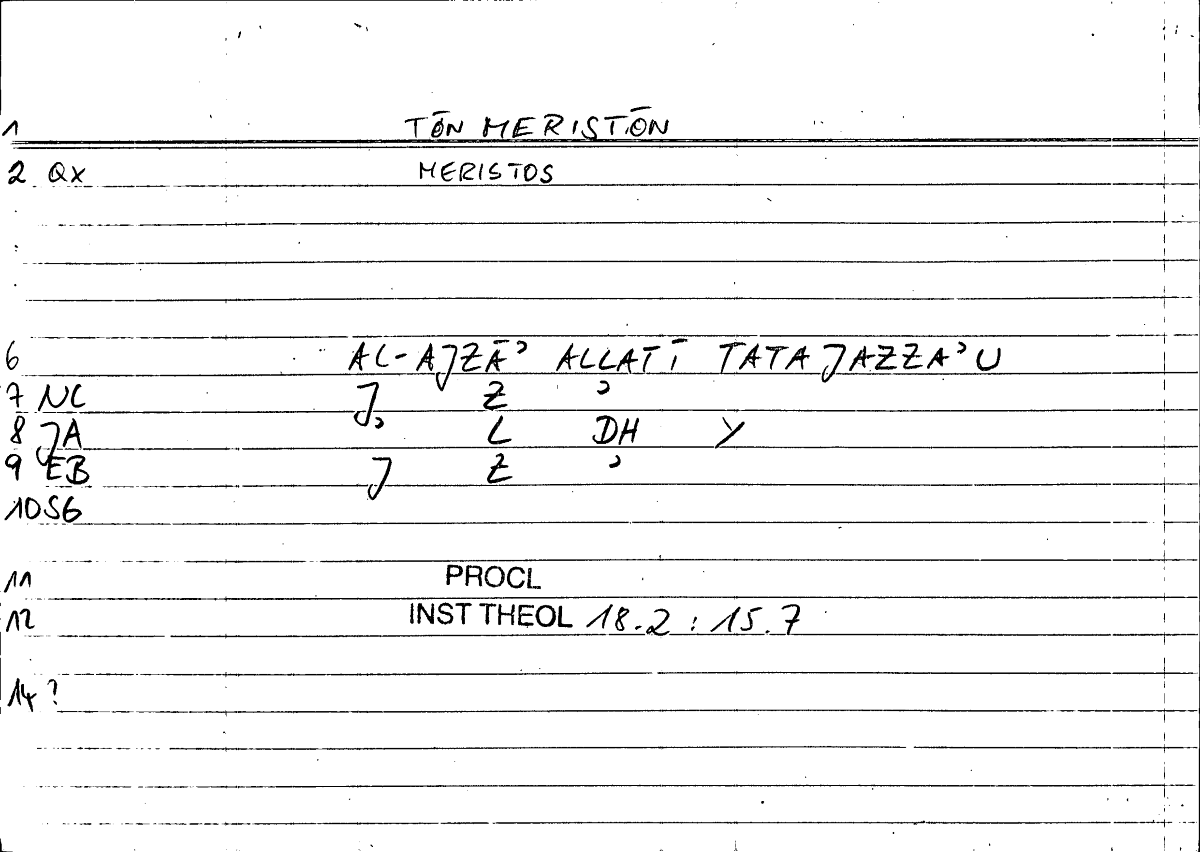 1 TŌN MERISTŌN
2 QX MERISTOS
6 AL-AJZĀʾ ALLATĪ TATAJAZZAʾU
7 NC J Z ʾ
8 JA L DH Y
9 EB J Z ʾ
10 SG
11 PROCL
12 INST THEOL 18.2 : 15.7
14 ?